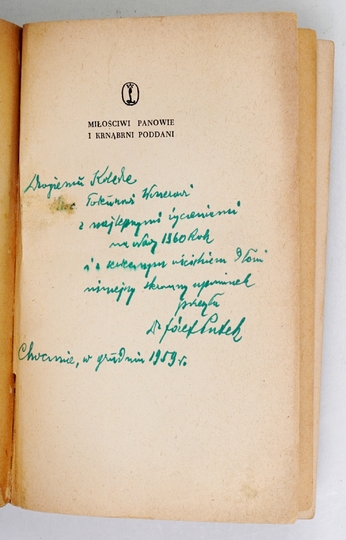 MIŁOŚCIWI PANOWIE
I KRNĄBRNI PODDANI
Drogiemu Koledze
z najlepszymi życzeniami
na Nowy 1960 Rok
i z serdecznym uściskiem Dłoni
niniejszy skromny upominek
przesyła
Dr Józef Putek
Chocznia, w grudniu 1959 r.